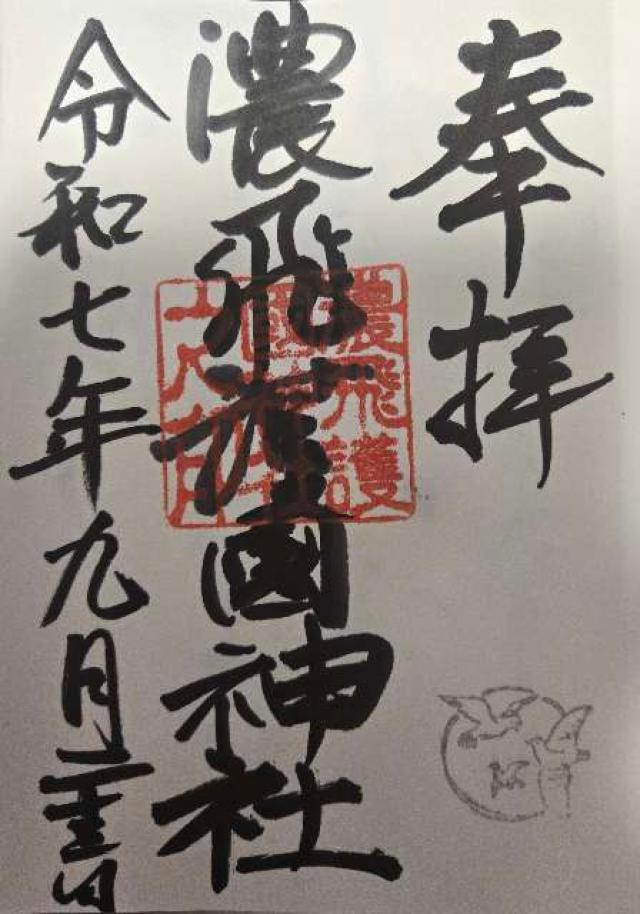 奉拝
濃飛護國神社
令和七年九月二十三日
濃飛護